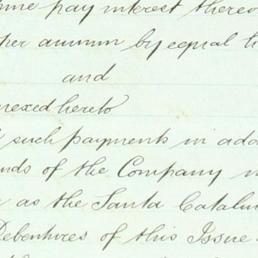 time pay interest thereo
per annum by equal h
and
nexed hereto
such payments in add
nds of the Company
as the Santa Catalin
Debentures of this Issue